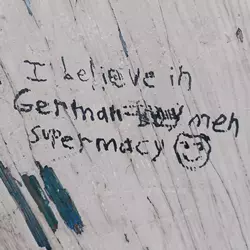 I believe in
German men
supermacy